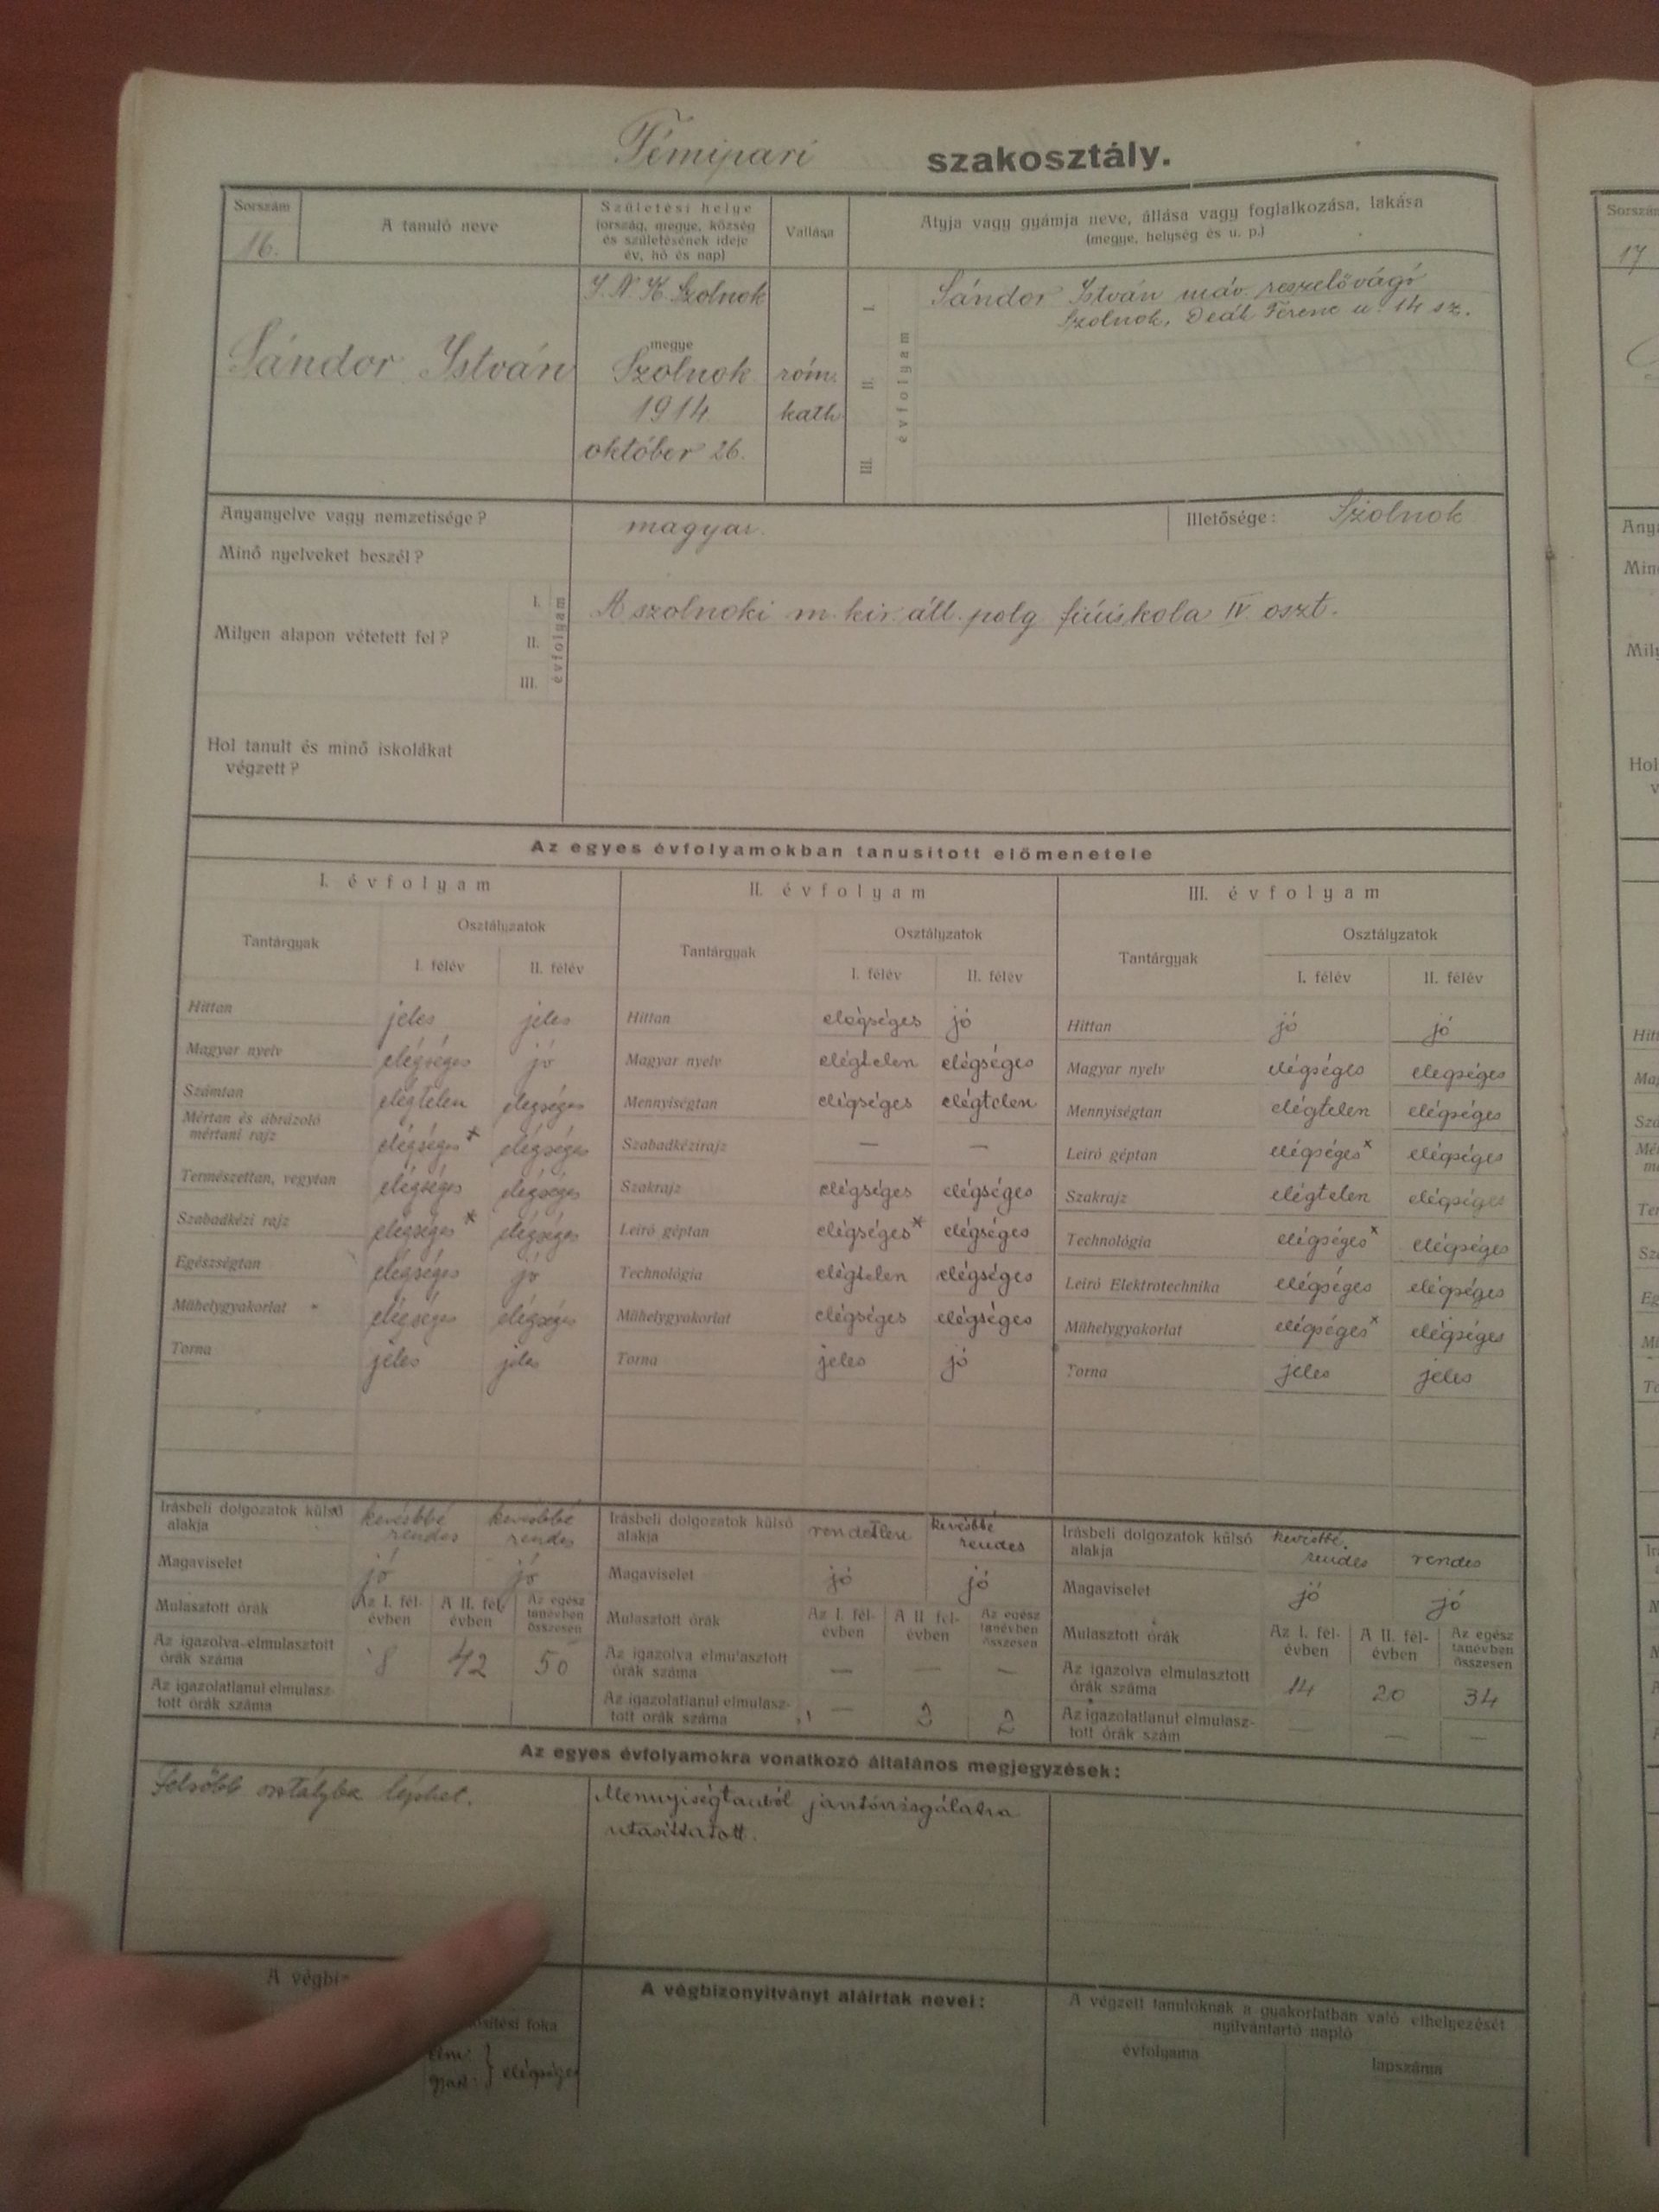 Fémipari szakosztály.
Sorszám
16.
A tanuló neve
Születési helye
(ország, megye, község
és születésének ideje
év, hó és nap)
Vallása
Atyja vagy gyámja neve, állása vagy foglalkozása, lakása
(megye, helység és u. p.)
Sándor István
J. N. K. Szolnok
megye
Szolnok
1914
október 26.
róm.
kath
I.
II.
III.
évfolyam
Sándor István máv. reszelővágó
Szolnok, Deák Ferenc u. 14 sz.
Anyanyelve vagy nemzetisége?
magyar.
Illetősége: Szolnok
Minő nyelveket beszél?
Milyen alapon vétetett fel?
I.
II.
III.
évfolyam
A szolnoki m. kir. áll. polg fiúiskola IV. oszt.
Hol tanult és minő iskolákat
végzett?
Az egyes évfolyamokban tanusított előmenetele
I. évfolyam
Tantárgyak
Osztályzatok
I. félév II. félév
Hittan jeles jeles
Magyar nyelv elégséges jó
Számtan elégtelen elégséges
Mértan és ábrázoló
mértani rajz elégséges x elégséges
Természettan, vegytan elégséges elégséges
Szabadkézi rajz elégséges x elégséges
Egészségtan elégséges jó
Műhelygyakorlat elégséges elégséges
Torna jeles jeles
II. évfolyam
Tantárgyak
Osztályzatok
I. félév II. félév
Hittan elégséges jó
Magyar nyelv elégtelen elégséges
Mennyiségtan elégséges elégtelen
Szabadkézirajz — —
Szakrajz elégséges elégséges
Leiró géptan elégséges x elégséges
Technológia elégtelen elégséges
Műhelygyakorlat elégséges elégséges
Torna jeles jó
III. évfolyam
Tantárgyak
Osztályzatok
I. félév II. félév
Hittan jó jó
Magyar nyelv elégséges elegséges
Mennyiségtan elégtelen elégséges
Leiró géptan elégséges x elégséges
Szakrajz elégtelen elégséges
Technológia elégséges x elégséges
Leiró Elektrotechnika elégséges elégséges
Műhelygyakorlat elégséges x elégséges
Torna jeles jeles
Irásbeli dolgozatok külső
alakja
kevésbbé
rendes
kevésbbé
rendes
Magaviselet jó jó
Mulasztott órák
Az I. fél-
évben
A II. fél
évben
Az egész
tanévben
összesen
Az igazolva elmulasztott
órák száma 8 42 50
Az igazolatlanul elmulasz-
tott órák száma
Irásbeli dolgozatok külső
alakja
rendetlen
kevésbbé
rendes
Magaviselet jó jó
Mulasztott órák
Az I. fél-
évben
A II fél-
évben
Az egész
tanévben
összesen
Az igazolva elmulasztott
órák száma — — —
Az igazolatlanul elmulasz-
tott órák száma — 2 2
Irásbeli dolgozatok külső
alakja
kevésbbé
rendes
rendes
Magaviselet jó jó
Mulasztott órák
Az I. fél-
évben
A II. fél-
évben
Az egész
tanévben
összesen
Az igazolva elmulasztott
órák száma 14 20 34
Az igazolatlanul elmulasz-
tott órák szám — — —
Az egyes évfolyamokra vonatkozó általános megjegyzések:
Felsőbb osztályba léphet.
Mennyiségtanból javítóvizsgálatra
utasíttatott.
A végbiz
ősítési foka
elm:
gyak:
} elégséges
A végbizonyítványt aláírtak nevei:
A végzett tanulóknak a gyakorlatban való elhelyezését
nyilvántartó napló
évfolyama
lapszáma
Sorszám
17